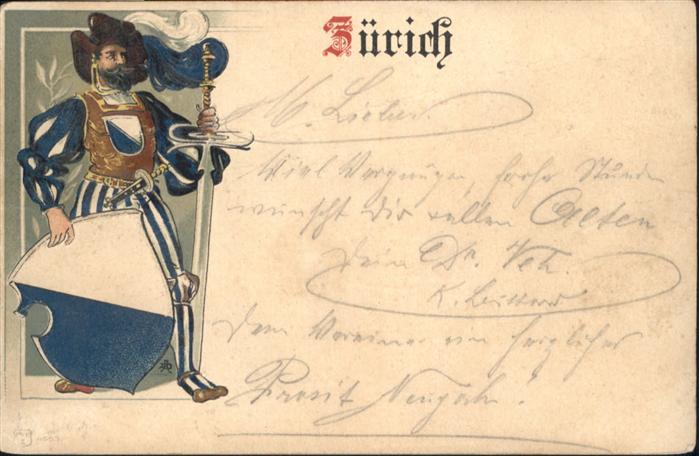 Zürich
M. Lieber.
Viel Vergnügen, frohe Stunden
wünscht Dir u. allen Alten
Dein
K.
Dem Vereine ein herzliches
Prosit Neujahr!